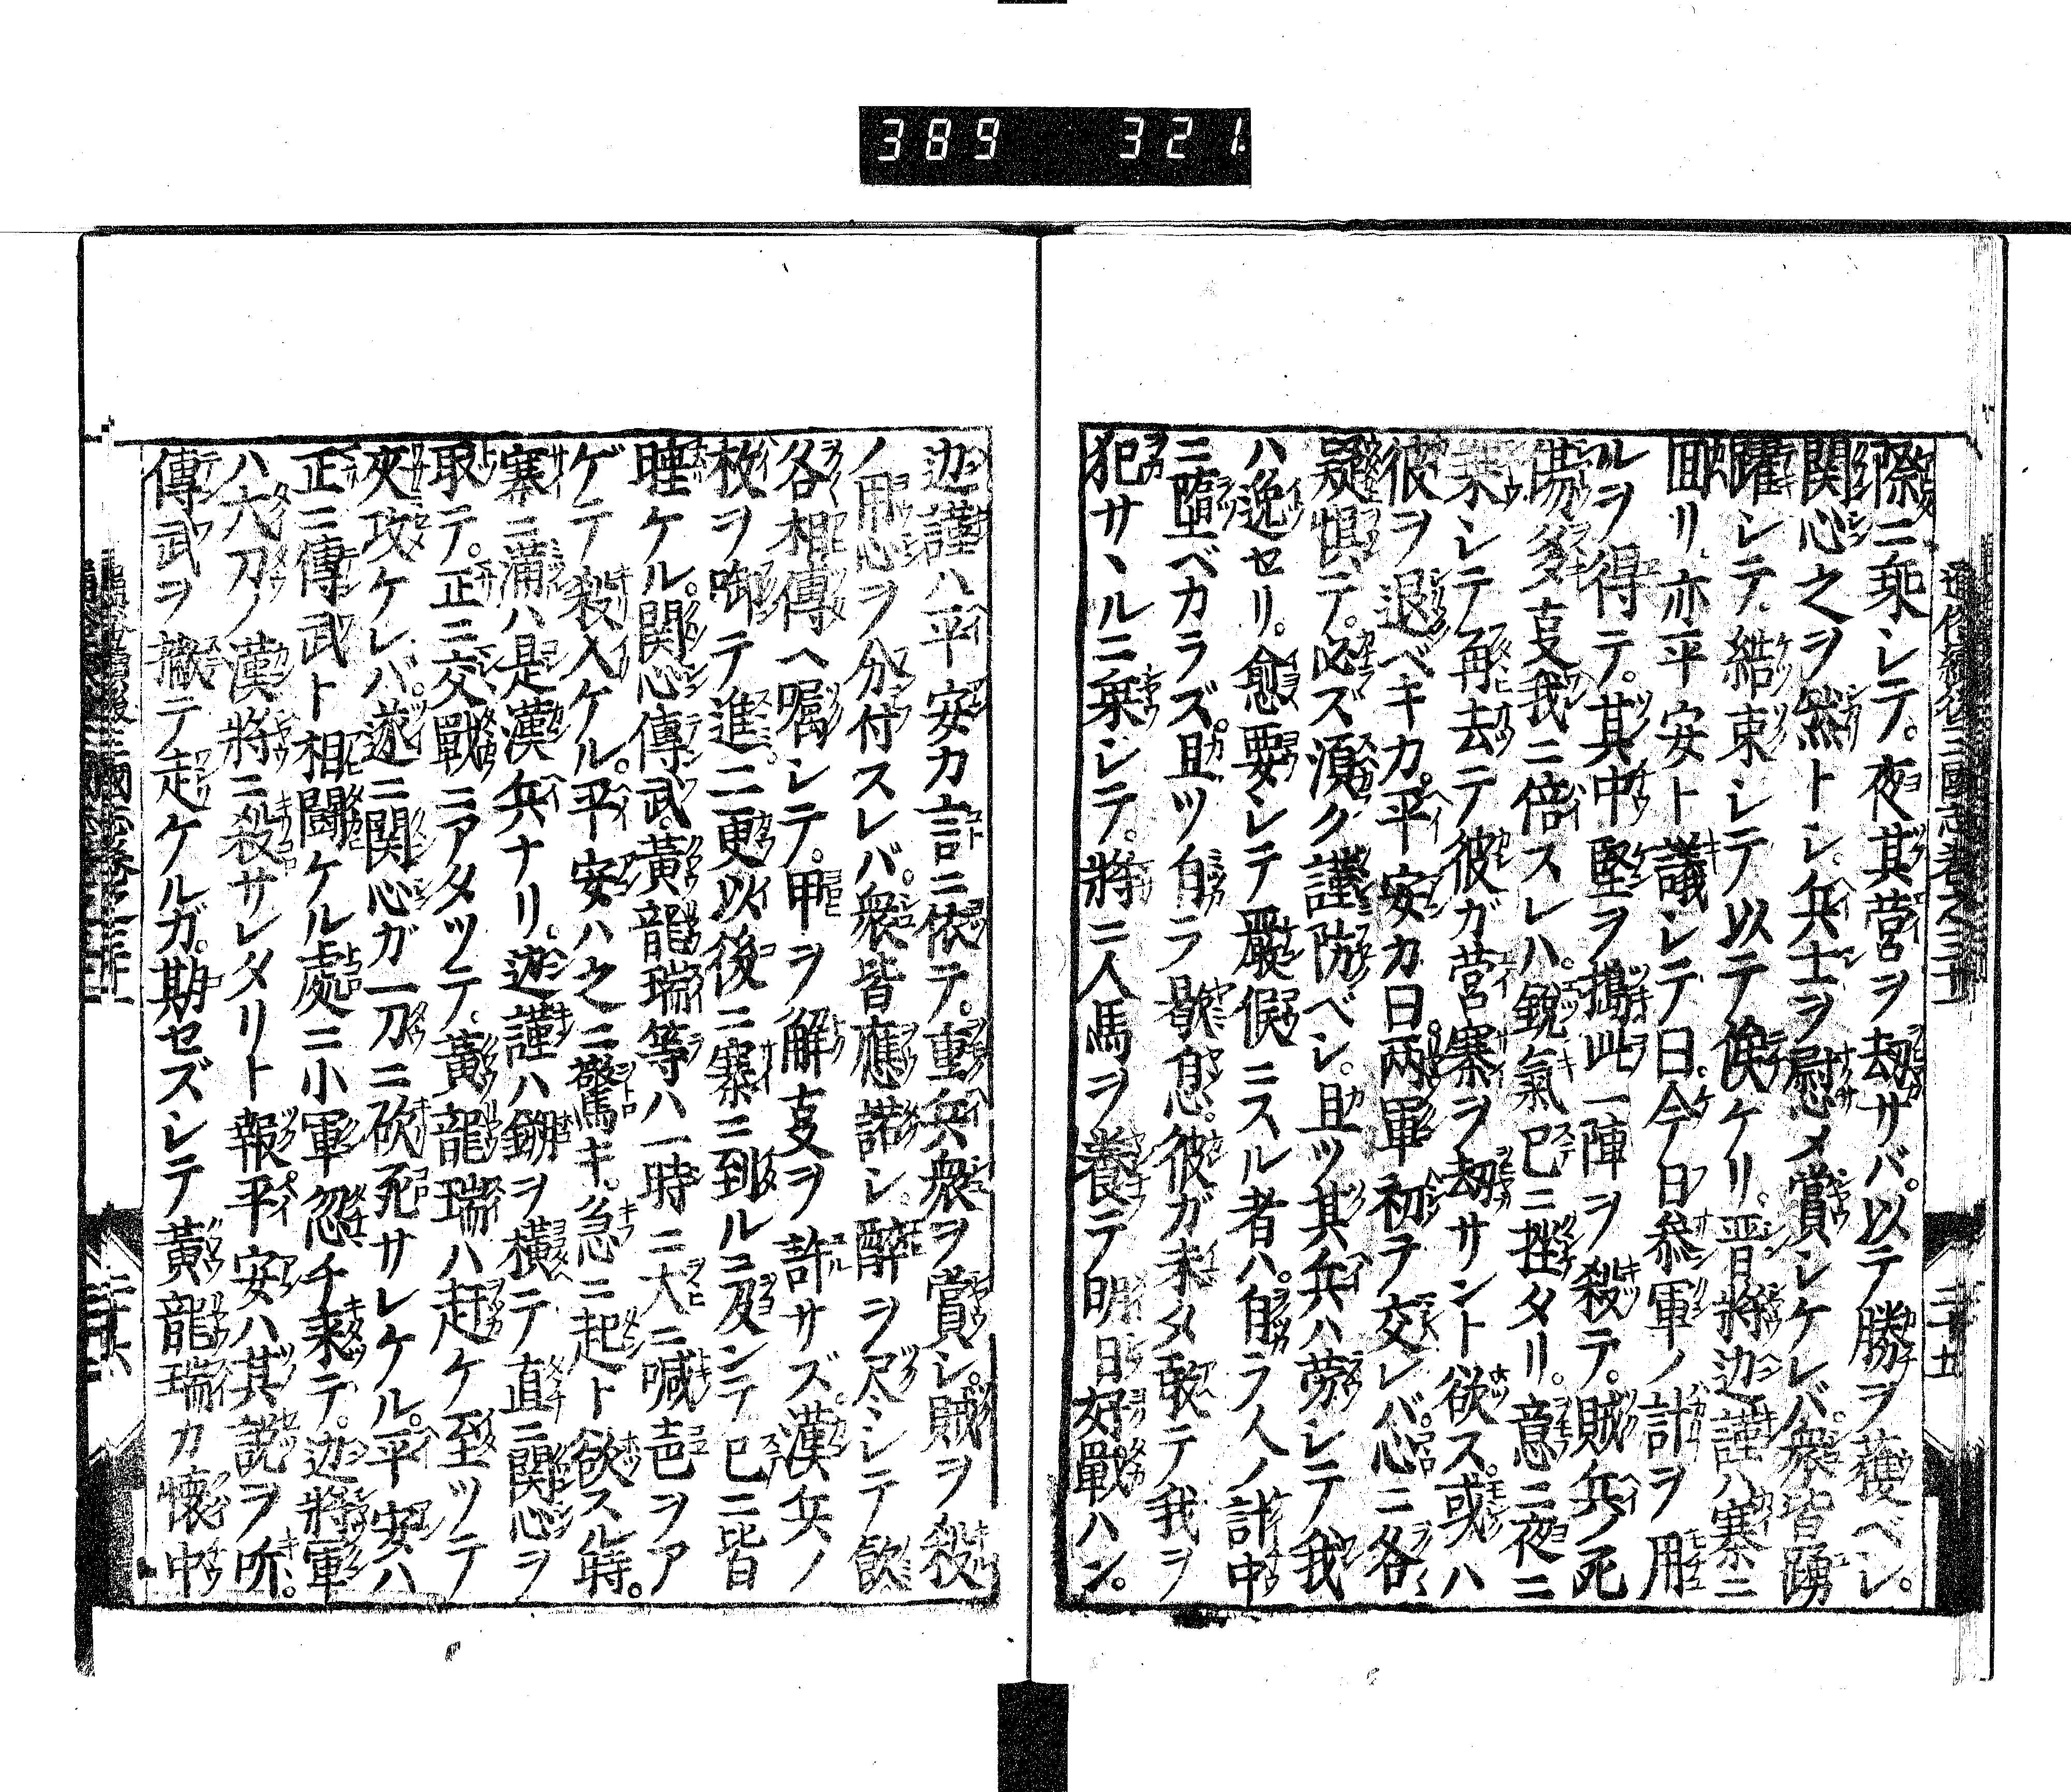 389 321
通俗續後三國志卷之二十一
二十五
際ニ乗シテ。夜其営ヲ刼サバ。以テ勝ヲ獲ベシ。
関心之ヲ然トシ。兵士ヲ慰メ賞シケレバ。衆皆踴
躍シテ。結束シテ以テ俟ケリ。晋將迯謹ハ寨ニ
囬リ。亦平安ト議シテ曰。今日叅軍ノ計ヲ用
ルヲ得テ。其中堅ヲ搗。此一陣ヲ殺テ。賊兵ノ死
傷多ク我ニ倍スレハ。鋭氣已ニ挫タリ。意ニ夜ニ
乗シテ再去テ彼ガ営寨ヲ刼サント欲ス。或ハ
彼ヲ退ベキカ。平安カ曰。兩軍初テ交レバ。心ニ各
疑惧テ。必ズ須ク謹防ベシ。且ツ其兵ハ劳シテ我
ハ逸セリ。愈要シテ嚴候ニスル者ハ。自ラ人ノ計中
ニ墮ベカラズ。且ツ自ラ歇息。彼ガ未タ敢テ我ヲ
犯サヽルニ乗シテ。將ニ人馬ヲ養テ明日好戰ハン。
迯謹ハ平安カ言ニ依テ。重兵衆ヲ賞シ。賊ヲ殺
ノ用心ヲ分付スレバ。衆皆應諾シ。醉ヲ尽シテ飲
各相傳へ嘱シテ。甲ヲ解支ヲ許サズ。漢兵ノ
枚ヲ啣テ進。二更以後ニ寨ニ到ルニ及ンテ。已ニ皆
睡ケル。関心傳武。黄龍瑞等ハ一時ニ大ニ喊声ヲア
ゲテ殺入ケル。平安ハ之ニ驚キ。急ニ起ト欲スル時。
寨ニ滿ハ是漢兵ナリ。迯謹ハ鎙ヲ横テ直ニ関心ヲ
取テ。正ニ交戰ニアタツテ。黄龍瑞ハ赶ケ至ツテ
夾攻ケレバ。遂ニ関心ガ一刀ニ砍死サレケル。平安ハ
正ニ傳武ト相闘ケル處ニ小軍忽チ来テ。迯將軍
ハ大刀ノ漢將ニ殺サレタリト報。平安ハ其説ヲ听。
傳武ヲ撇テ走ケルガ。期セズシテ黄龍瑞カ懐中
二十六